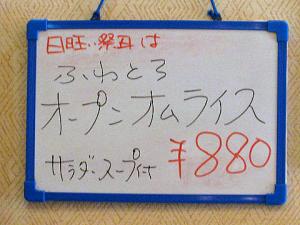 日旺・祭日は
ふわとろ
オープンオムライス
サラダ・スープ付 ¥880